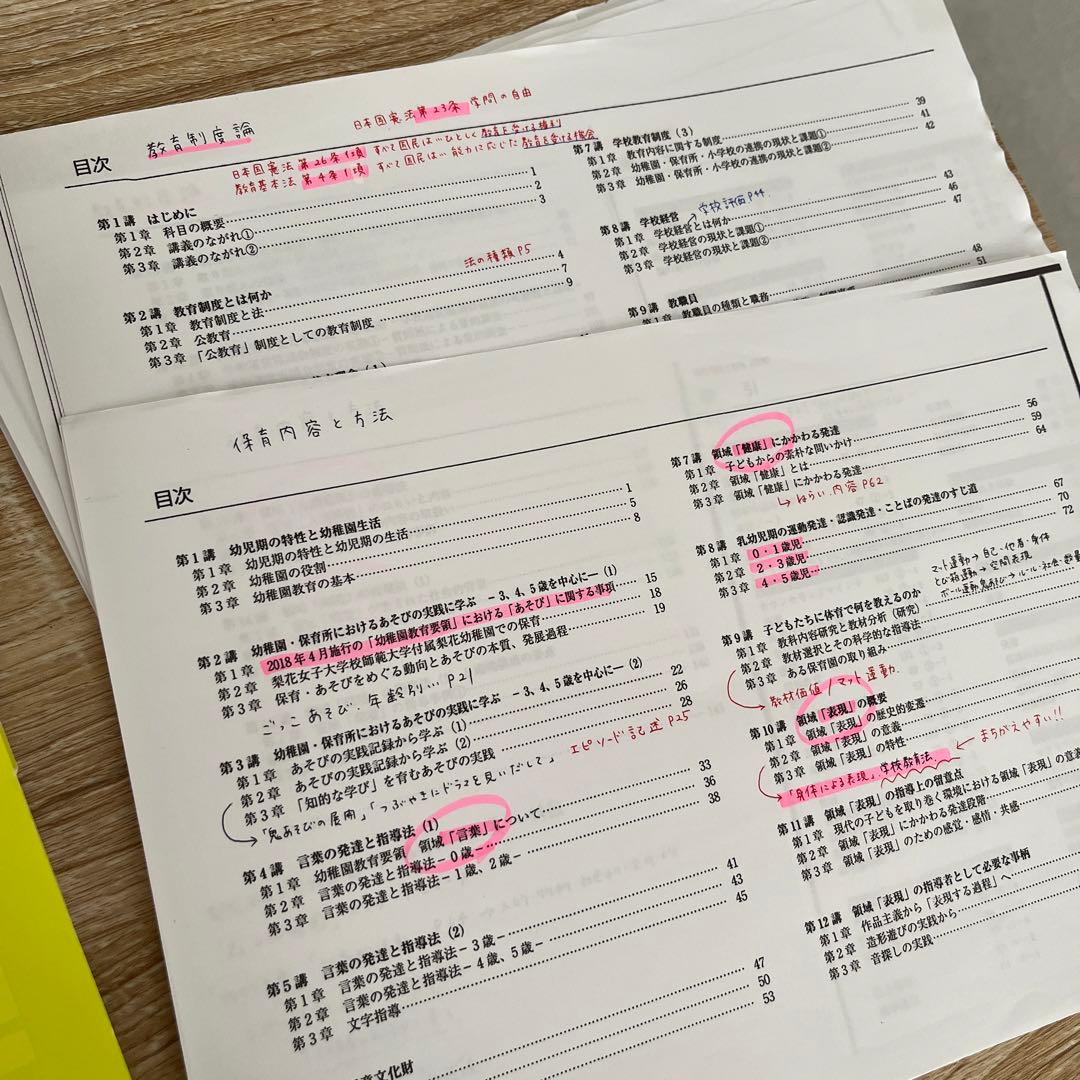 教育制度論
日本国憲法第23条 学問の自由
日本国憲法第26条1項 すべて国民は…ひとしく教育を受ける権利
教育基本法 第4条1項 すべて国民は…能力に応じた教育を受ける機会
目次
第1講 はじめに
第1章 科目の概要 1
第2章 講義のながれ① 2
第3章 講義のながれ② 3
法の種類P5
第2講 教育制度とは何か
第1章 教育制度と法 4
第2章 公教育 7
第3章 「公教育」制度としての教育制度 9
第7講 学校教育制度(3)
第1章 教育内容に関する制度 39
第2章 幼稚園・保育所・小学校の連携の現状と課題① 41
第3章 幼稚園・保育所・小学校の連携の現状と課題② 42
学校評価P44
第8講 学校経営
第1章 学校経営とは何か 43
第2章 学校経営の現状と課題① 46
第3章 学校経営の現状と課題② 47
第9講 教職員
第1章 教職員の種類と職務 48
51
保育内容と方法
目次
第1講 幼児期の特性と幼稚園生活
第1章 幼児期の特性と幼児期の生活 1
第2章 幼稚園の役割 5
第3章 幼稚園教育の基本 8
第2講 幼稚園・保育所におけるあそびの実践に学ぶ -3、4、5歳を中心に-(1)
第1章 2018年4月施行の「幼稚園教育要領」における「あそび」に関する事項 15
第2章 梨花女子大学校師範大学付属梨花幼稚園での保育 18
第3章 保育・あそびをめぐる動向とあそびの本質、発展過程 19
ごっこあそび・年齢別…P21
第3講 幼稚園・保育所におけるあそびの実践に学ぶ -3、4、5歳を中心に-(2)
第1章 あそびの実践記録から学ぶ(1) 22
第2章 あそびの実践記録から学ぶ(2) 26
第3章 「知的な学び」を育むあそびの実践 28
エピソード記述P25
「鬼あそびの展開」「つぶやきにドラマを見いだして」
第4講 言葉の発達と指導法(1)
第1章 幼稚園教育要領 領域「言葉」について 33
第2章 言葉の発達と指導法-0歳- 36
第3章 言葉の発達と指導法-1歳、2歳- 38
第5講 言葉の発達と指導法(2)
第1章 言葉の発達と指導法-3歳- 41
第2章 言葉の発達と指導法-4歳、5歳- 43
第3章 文字指導 45
文化財
47
50
53
第7講 領域「健康」にかかわる発達
第1章 子どもからの素朴な問いかけ 56
第2章 領域「健康」とは 59
第3章 領域「健康」にかかわる発達 64
→ねらい、内容P62
第8講 乳幼児期の運動発達・認識発達・ことばの発達のすじ道
第1章 0・1歳児 67
第2章 2・3歳児 70
第3章 4・5歳児 72
マット運動→自己・他者・身体
とび箱運動→空間表現
ボール運動鬼あそび→ルール・社会・数量
第9講 子どもたちに体育で何を教えるのか
第1章 教科内容研究と教材分析(研究)
第2章 教材選択とその科学的な指導法
第3章 ある保育園の取り組み
教材価値/マット運動
第10講 領域「表現」の概要
第1章 領域「表現」の歴史的変遷
第2章 領域「表現」の意義
第3章 領域「表現」の特性
「身体による表現」学校教育法 ← まちがえやすい!!
第11講 領域「表現」の指導上の留意点
第1章 現代の子どもを取り巻く環境における領域「表現」の意義
第2章 領域「表現」にかかわる発達段階
第3章 領域「表現」のための感覚・感情・共感
第12講 領域「表現」の指導者として必要な事柄
第1章 作品主義から「表現する過程」へ
第2章 造形遊びの実践から
第3章 音探しの実践